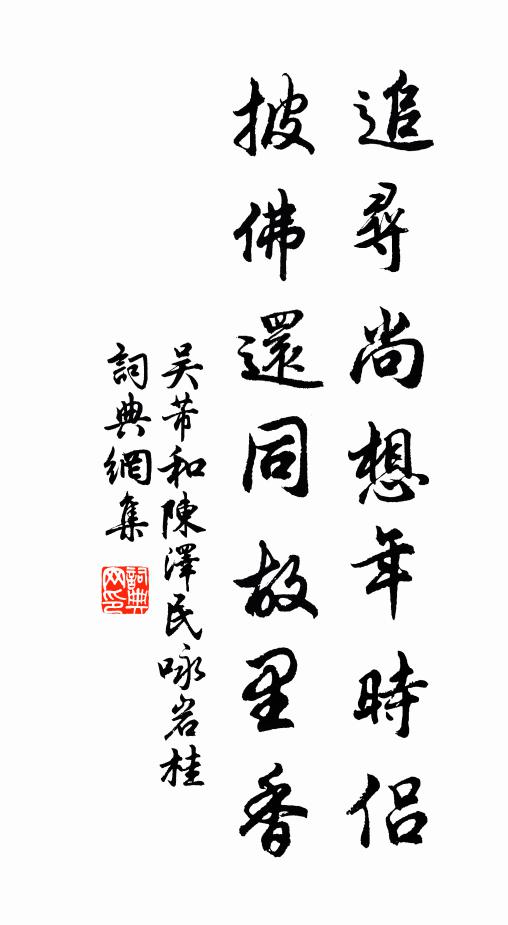 追尋尚想年時侶
披佛還同故里香
吴芾和陳澤民咏岩桂
詞典網集
詞典
网印